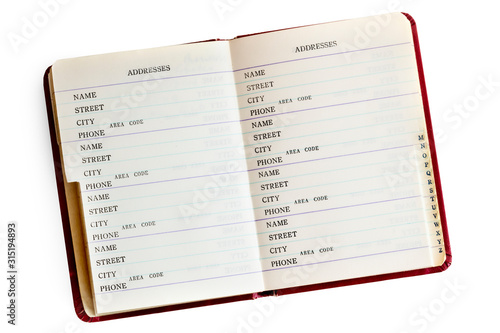 ADDRESSES
NAME
STREET
CITY
PHONE AREA CODE
NAME
STREET
CITY
PHONE AREA CODE
NAME
STREET
CITY
PHONE AREA CODE
NAME
STREET
CITY
PHONE AREA CODE
ADDRESSES
NAME
STREET
CITY
PHONE AREA CODE
NAME
STREET
CITY
PHONE AREA CODE
NAME
STREET
CITY
PHONE AREA CODE
NAME
STREET
CITY
PHONE AREA CODE
M
N
O
P
Q
R
S
T
U
V
W
X
Y
Z
Adobe Stock | #315194893